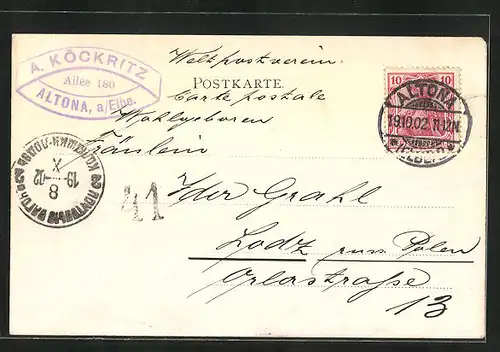 A. KÖCKRITZ
Allee 180
ALTONA, a/Elbe.
Weltpostverein.
POSTKARTE.
Carte postale
Wohlgeboren
Fräulein
Grahl
Lodz russ Polen
Orlastraße
13
41
10 10
ALTONA
19.10.02. 11-12N.
19 X 02
8